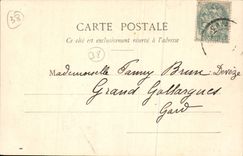 38
CARTE POSTALE
Ce côté est exclusivement réservé à l'adresse
38
Mademoiselle Fanny Brun Devèze
Grand Gallargues
Gard